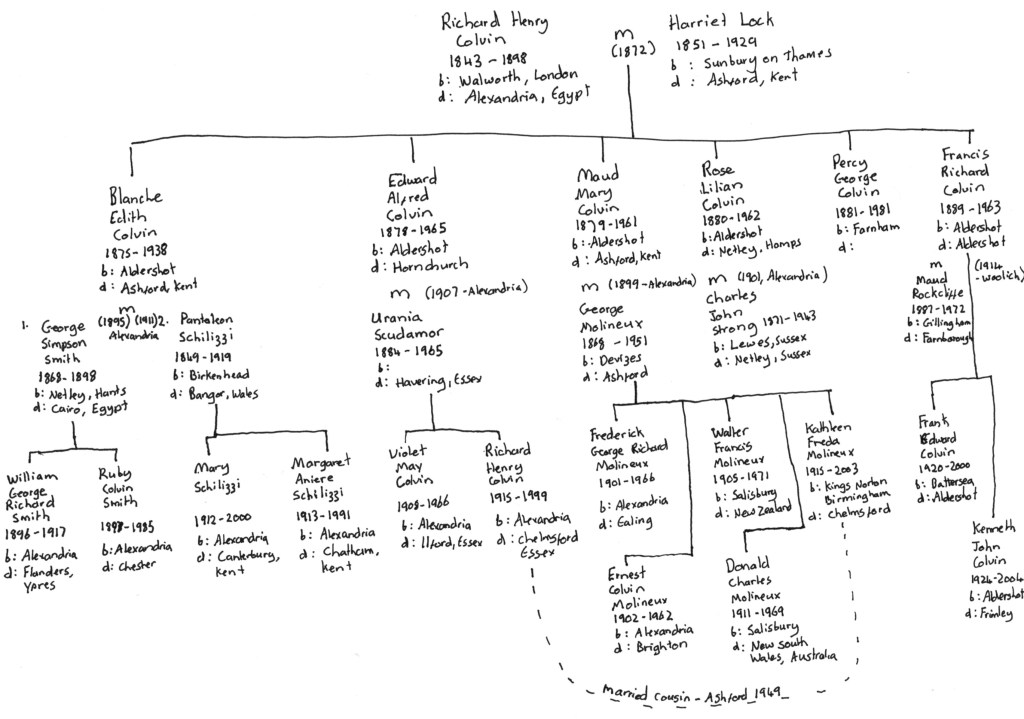 Richard Henry
Colvin
1843 - 1898
b: Walworth, London
d: Alexandria, Egypt
m
(1872)
Harriet Lock
1851 - 1929
b: Sunbury on Thames
d: Ashford, Kent
Blanche
Edith
Colvin
1875-1938
b: Aldershot
d: Ashford, Kent
m
(1895) (1911)
Alexandria
1. George
Simpson
Smith
1868-1898
b: Netley, Hants
d: Cairo, Egypt
2. Pantaleon
Schilizzi
1849-1919
b: Birkenhead
d: Bangor, Wales
Edward
Alfred
Colvin
1878-1965
b: Aldershot
d: Hornchurch
m (1907-Alexandria)
Urania
Scudamor
1884-1965
b:
d: Havering, Essex
Maud
Mary
Colvin
1879-1961
b: Aldershot
d: Ashford, Kent
m (1899-Alexandria)
George
Molineux
1868 - 1951
b: Devizes
d: Ashford
Rose
Lilian
Colvin
1880-1962
b: Aldershot
d: Netley, Hamps
m (1901, Alexandria)
Charles
John
Strong 1871-1943
b: Lewes, Sussex
d: Netley, Sussex
Percy
George
Colvin
1881-1981
b: Farnham
d:
Francis
Richard
Colvin
1889-1963
b: Aldershot
d: Aldershot
m
(1914
-Woolich)
Maud
Rockcliffe
1887-1972
b: Gillingham
d: Farnborough
William
George
Richard
Smith
1896-1917
b: Alexandria
d: Flanders,
Ypres
Ruby
Colvin
Smith
1898-1985
b: Alexandria
d: Chester
Mary
Schilizzi
1912-2000
b: Alexandria
d: Canterbury,
Kent
Margaret
Aniere
Schilizzi
1913-1991
b: Alexandria
d: Chatham,
Kent
Violet
May
Colvin
1908-1966
b: Alexandria
d: Ilford, Essex
Richard
Henry
Colvin
1915-1999
b: Alexandria
d: Chelmsford
Essex
Frederick
George Richard
Molineux
1901-1966
b: Alexandria
d: Ealing
Ernest
Colvin
Molineux
1902-1962
b: Alexandria
d: Brighton
Walter
Francis
Molineux
1905-1971
b: Salisbury
d: New Zealand
Donald
Charles
Molineux
1911-1969
b: Salisbury
d: New South
Wales, Australia
Kathleen
Freda
Molineux
1915-2003
b: Kings Norton
Birmingham
d: Chelmsford
Frank
Edward
Colvin
1920-2000
b: Battersea
d: Aldershot
Kenneth
John
Colvin
1924-2004
b: Aldershot
d: Frimley
Married Cousin - Ashford 1949